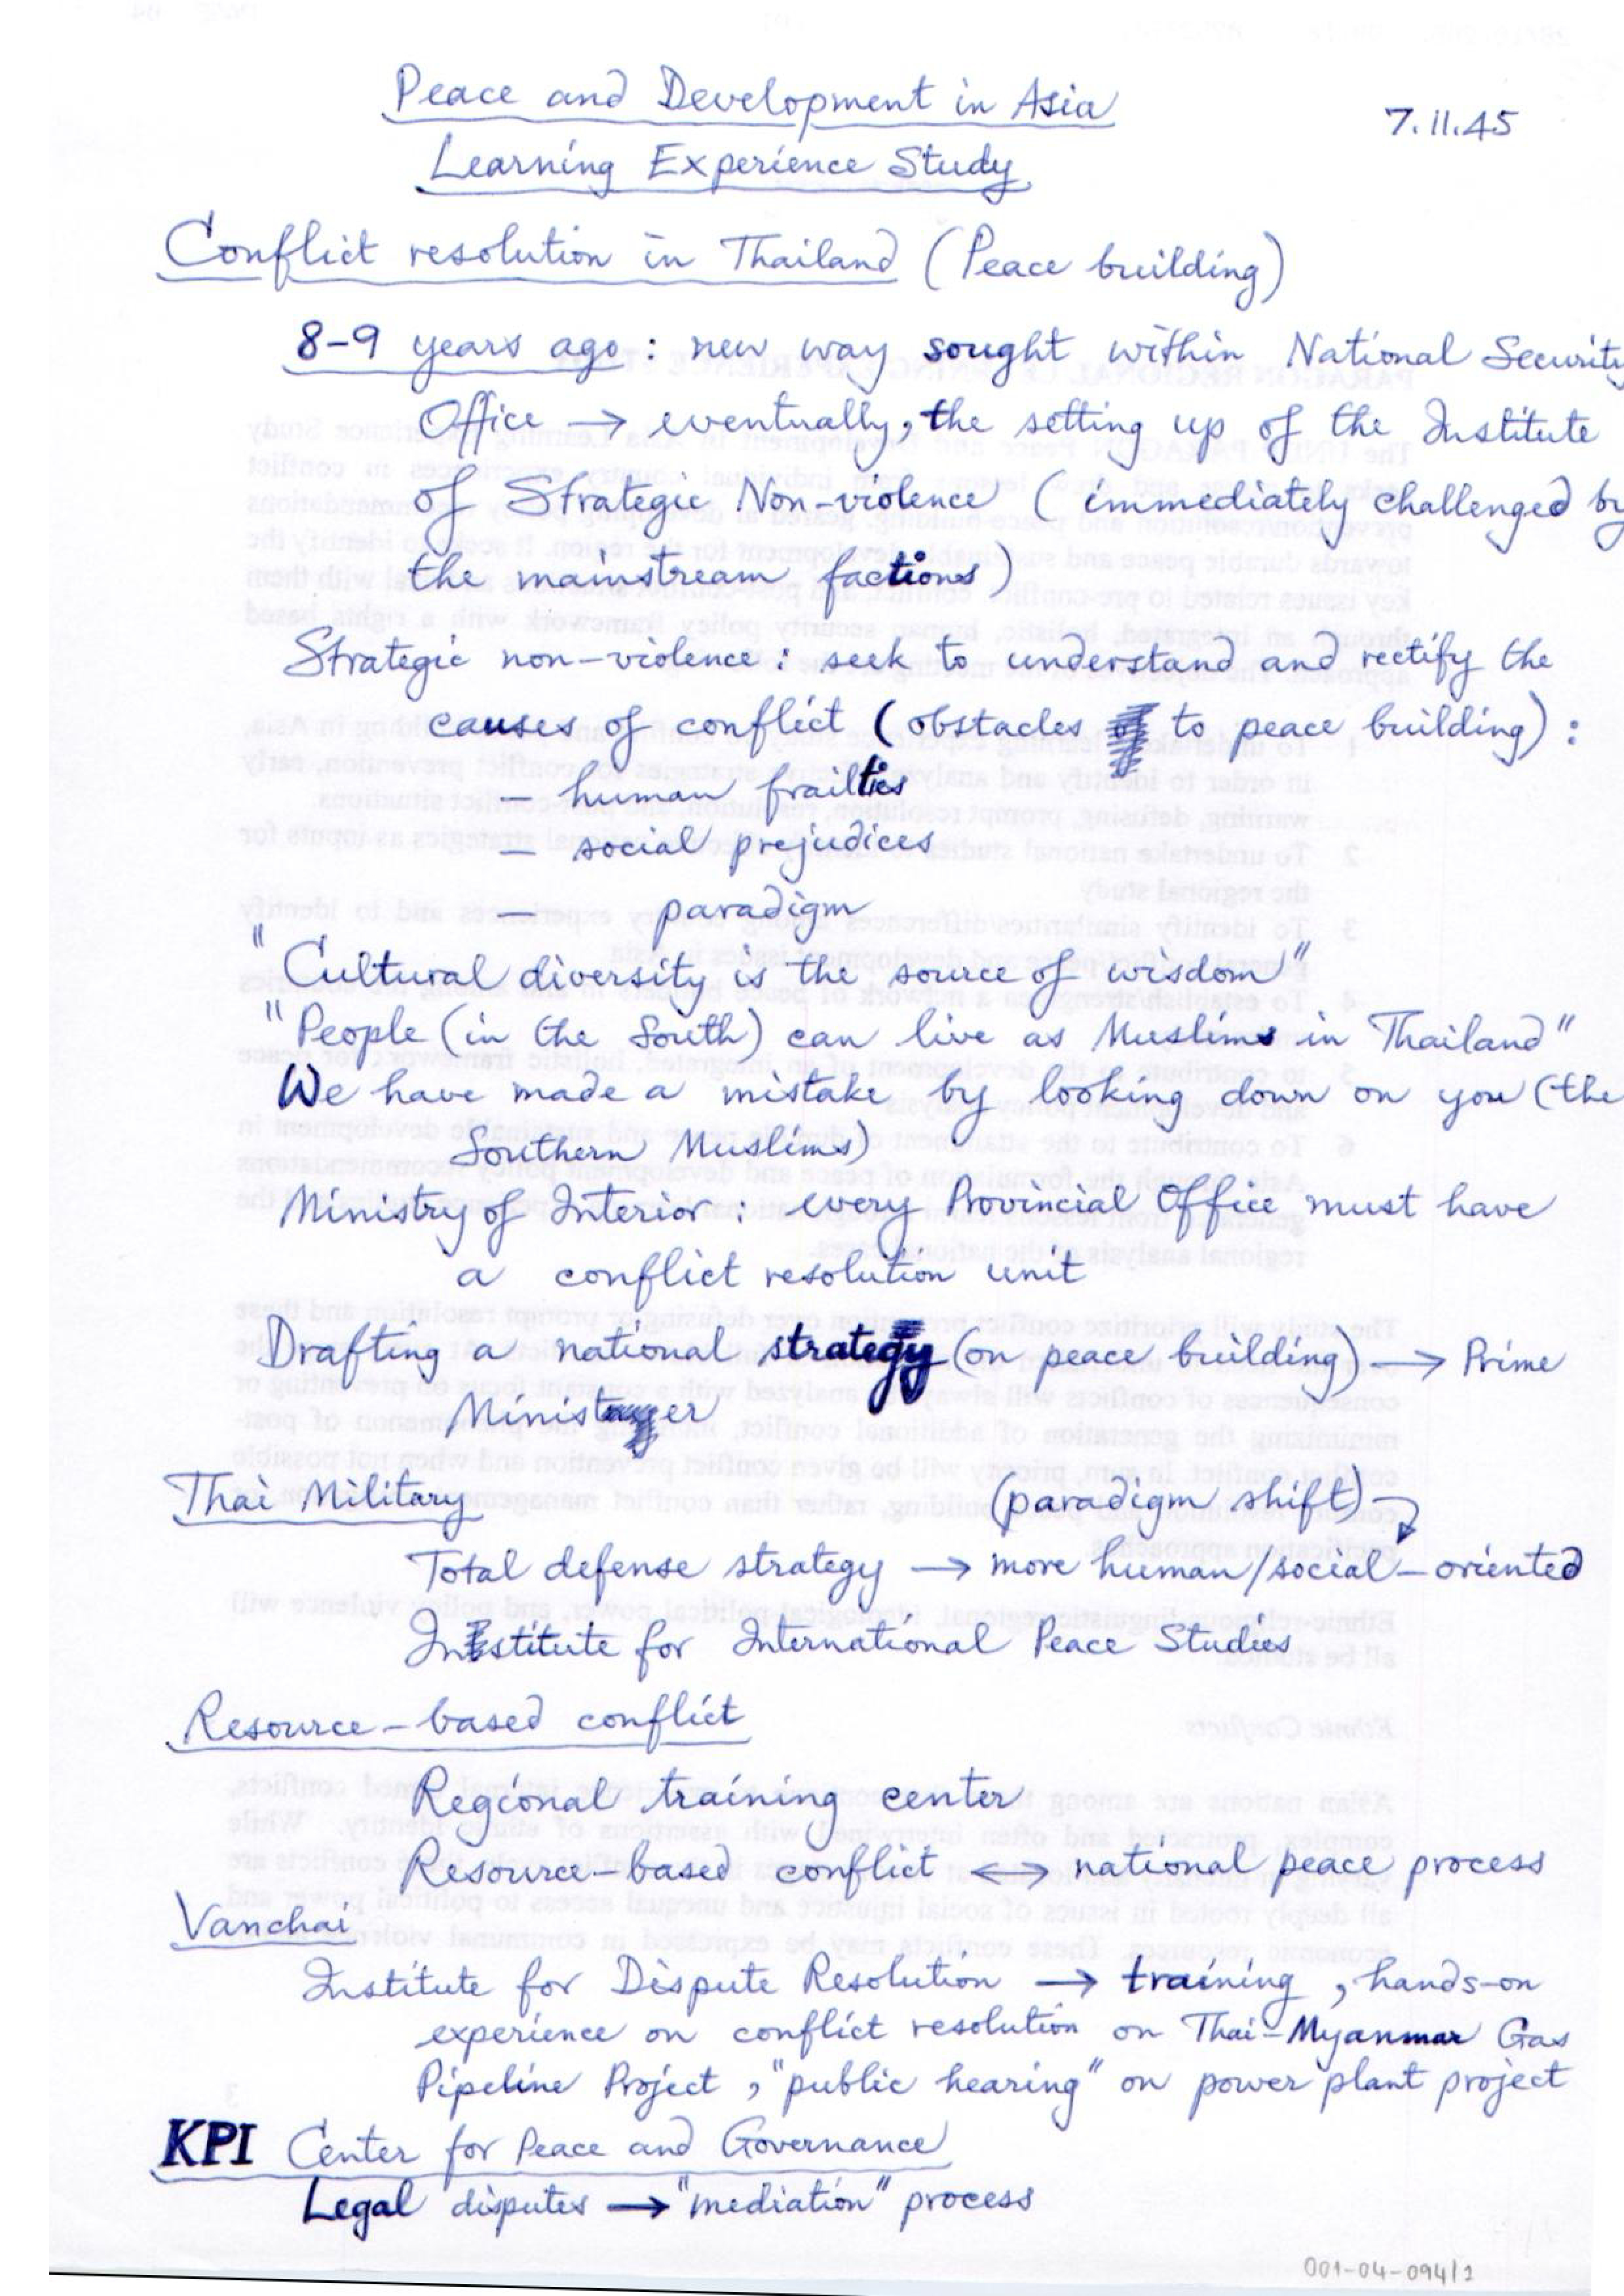 Peace and Development in Asia
7.11.45
Learning Experience Study
Conflict resolution in Thailand (Peace building)
8-9 years ago : new way sought within National Security
Office → eventually, the setting up of the Institute
of Strategic Non-violence (immediately challenged by
the mainstream factions)
Strategic non-violence : seek to understand and rectify the
causes of conflict (obstacles to peace building) :
- human frailties
- social prejudices
- paradigm
"Cultural diversity is the source of wisdom"
"People (in the South) can live as Muslims in Thailand"
We have made a mistake by looking down on you (the
Southern Muslims)
Ministry of Interior : every Provincial Office must have
a conflict resolution unit
Drafting a national strategy (on peace building) → Prime
Minister
Thai Military
(paradigm shift)
Total defense strategy → more human/social-oriented
Institute for International Peace Studies
Resource-based conflict
Regional training center
Resource-based conflict ↔ national peace process
Vanchai
Institute for Dispute Resolution → training, hands-on
experience on conflict resolution on Thai-Myanmar Gas
Pipeline Project, "public hearing" on power plant project
KPI Center for Peace and Governance
Legal disputes → "mediation" process
001-04-094/2